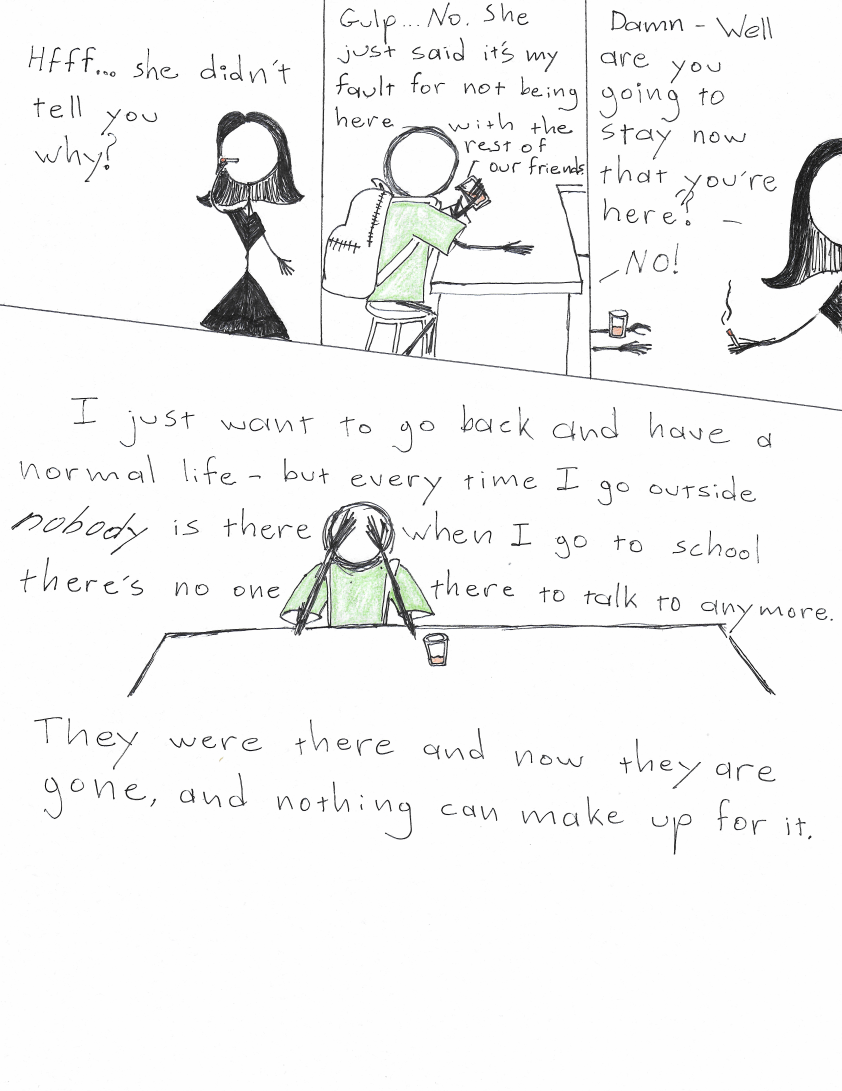 Hfff... she didn't
tell you
why?
Gulp... No. She
just said it's my
fault for not being
here — with the
rest of
our friends.
Damn - Well
are you
going to
stay now
that you're
here? -
NO!
I just want to go back and have a
normal life - but every time I go outside
nobody is there when I go to school
there's no one there to talk to anymore.
They were there and now they are
gone, and nothing can make up for it.